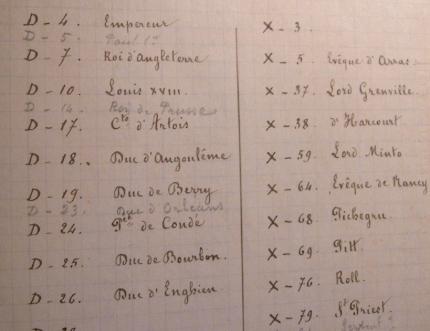 D - 4. Empereur
D - 5. Paul 1er
D - 7. Roi d'Angleterre
D - 10 Louis XVIII.
D - 14. Roi de Prusse
D - 17. Cte d'Artois
D - 18. Duc d'Angoulême
D - 19. Duc de Berry
D - 23. Duc d'Orléans
D - 24. Pce de Condé
D - 25. Duc de Bourbon.
D - 26. Duc d'Enghien
X - 3.
X - 5. Evêque d'Arras
X - 37. Lord Grenville.
X - 38. d'Harcourt
X - 59. Lord Minto
X - 64. Evêque de Nancy
X - 68. Pichegru.
X - 69. Pitt.
X - 76. Roll.
X - 79. St Priest.